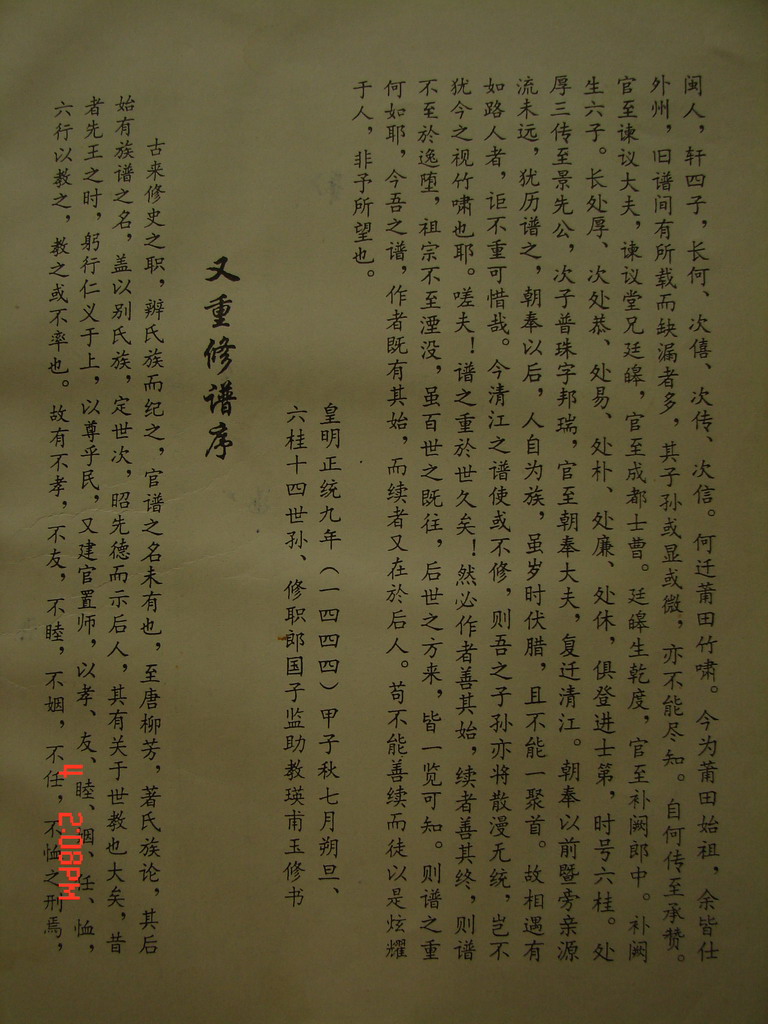 闽人，轩四子，长何、次僖、次传、次信。何迁莆田竹啸。今为莆田始祖，余皆仕
外州，旧谱间有所载而缺漏者多，其子孙或显或微，亦不能尽知。自何传至承赞。
官至谏议大夫，谏议堂兄廷皞，官至成都士曹。廷皞生乾度，官至补阙郎中。补阙
生六子。长处厚、次处恭、处易、处朴、处廉、处休，俱登进士第，时号六桂。处
厚三传至景先公，次子普珠字邦瑞，官至朝奉大夫，复迁清江。朝奉以前暨旁亲源
流未远，犹历谱之，朝奉以后，人自为族，虽岁时伏腊，且不能一聚首。故相遇有
如路人者，讵不重可惜哉。今清江之谱使或不修，则吾之子孙亦将散漫无统，岂不
犹今之视竹啸也耶。嗟夫！谱之重於世久矣！然必作者善其始，续者善其终，则谱
不至於逸堕，祖宗不至湮没，虽百世之既往，后世之方来，皆一览可知。则谱之重
何如耶，今吾之谱，作者既有其始，而续者又在於后人。苟不能善续而徒以是炫耀
于人，非予所望也。
皇明正统九年（一四四四）甲子秋七月朔旦、
六桂十四世孙、修职郎国子监助教瑛甫玉修书
又重修谱序
古来修史之职，辨氏族而纪之，官谱之名未有也，至唐柳芳，著氏族论，其后
始有族谱之名，盖以别氏族，定世次，昭先德而示后人，其有关于世教也大矣，昔
者先王之时，躬行仁义于上，以尊乎民，又建官置师，以孝、友、睦、姻、任、恤，
六行以教之，教之或不率也。故有不孝，不友，不睦，不姻，不任，不恤之刑焉，
4 2:08PM